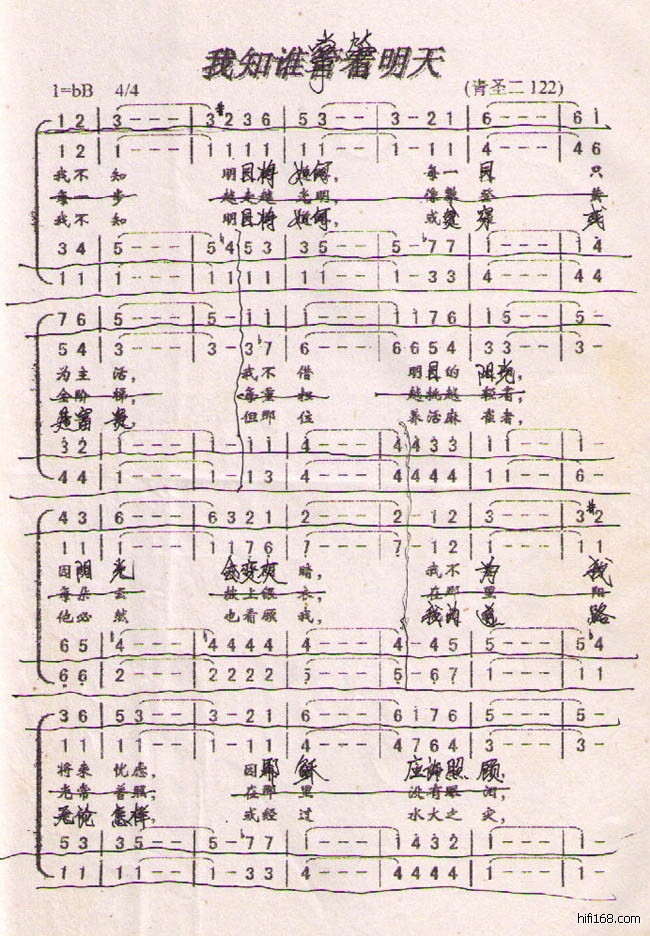 我知谁掌着明天
1=bB 4/4 (青圣二122)
1 2 3 - - - 3 #2 3 6 5 3 - - - 3 - 2 1 6 - - - 6 1
1 2 1 - - - 1 1 1 1 1 1 - - - 1 - 1 1 4 - - - 4 6
我不 知 明日将 如何, 每一 日 只
每一 步 越走越 光明, 像攀 登 黄
我不 知 明日将 如何, 或 穿 或
3 4 5 - - - 5 b4 5 3 3 5 - - - 5 - b7 7 1 - - - 1 4
1 1 1 - - - 1 1 1 1 1 1 - - - 1 - 3 3 4 - - - 4 4
7 6 5 - - - 5 - 1 1 1 - - - 1 1 7 6 1 5 - - - 5 -
5 4 3 - - - 3 - 3 b7 6 - - - 6 6 5 4 3 3 - - - 3 -
为主 活, 我不 借 明日的 阳光,
金阶 梯, 每重 担 越挑越 轻省,
是富 贵 但那 位 养活麻 雀者,
3 2 1 - - - 1 - 1 1 4 - - - 4 4 3 3 1 - - - 1 -
4 4 1 - - - 1 - 1 3 4 - - - 4 4 4 4 1 1 - - - 6 -
4 3 6 - - - 6 3 2 1 2 - - - 2 - 1 2 3 - - - 3 #2
1 1 1 - - - 1 1 7 6 7 - - - 7 - 1 2 1 - - - 1 1
因阳 光 会变灰 暗, 我不 为 我
每朵 云 披上银 衣, 在那 里 阳
他必 然 也看顾 我, 我的 道 路
6 5 b4 - - - b4 4 4 4 4 - - - 4 - 4 5 5 - - - b5 4
6 6 2 - - - 2 2 2 2 5 - - - 5 - 6 7 1 - - - 1 1
3 6 5 3 - - - 3 - 2 1 6 - - - 6 1 7 6 5 - - - 5 -
1 1 1 1 - - - 1 - 1 1 4 - - - 4 7 6 4 3 - - - 3 -
将来 忧虑, 因耶 稣 应许照 顾,
光常 普照, 在那 里 没有眼 泪,
无论 怎样, 或经 过 水火之 灾,
5 3 3 5 - - - 5 - b7 7 1 - - - 1 4 3 2 1 - - - 1 -
1 1 1 1 - - - 1 - 3 3 4 - - - 4 4 4 4 1 - - - 1 -
hifi168.com